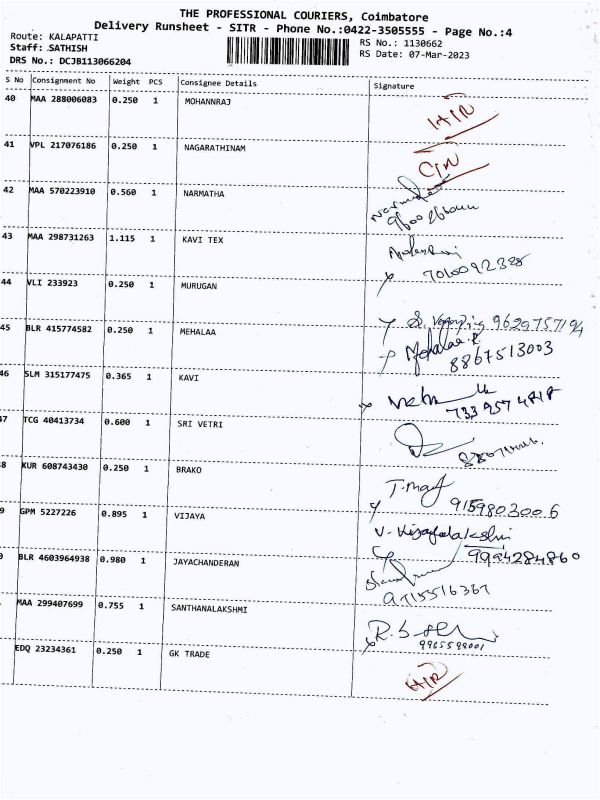 THE PROFESSIONAL COURIERS, Coimbatore
Delivery Runsheet - SITR - Phone No.:0422-3505555 - Page No.:4
Route: KALAPATTI
RS No.: 1130662
Staff: SATHISH
RS Date: 07-Mar-2023
DRS No.: DCJB113066204
S No Consignment No Weight PCS Consignee Details Signature
40 MAA 288006083 0.250 1 MOHANNRAJ
41 VPL 217076186 0.250 1 NAGARATHINAM
42 MAA 570223910 0.560 1 NARMATHA
43 MAA 298731263 1.115 1 KAVI TEX
7010092328
44 VLI 233923 0.250 1 MURUGAN
9629757194
45 BLR 415774582 0.250 1 MEHALAA Mehalaa.R
8867513003
46 SLM 315177475 0.365 1 KAVI
7339574818
47 TCG 40413734 0.600 1 SRI VETRI
8 KUR 608743430 0.250 1 BRAKO
9159803006
9 GPM 5227226 0.895 1 VIJAYA V. Vijayalakshmi
9994284860
0 BLR 4603964938 0.980 1 JAYACHANDERAN
9715516367
MAA 299407699 0.755 1 SANTHANALAKSHMI
9965599001
EDQ 23234361 0.250 1 GK TRADE